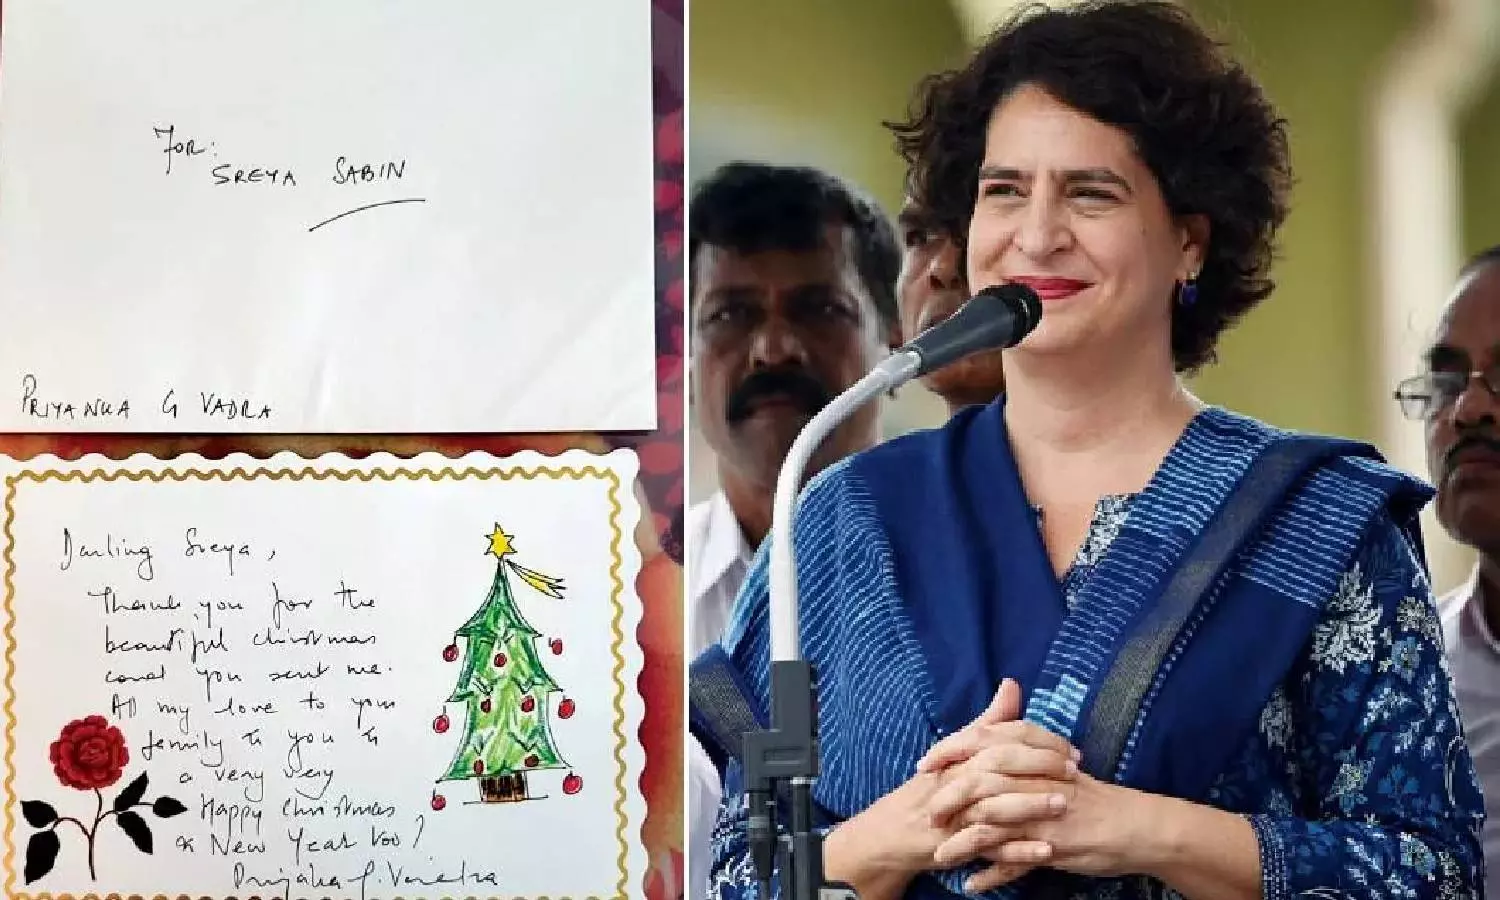 For:
SREYA SABIN
PRIYANKA G VADRA
Darling Sreya,
Thank you for the
beautiful christmas
card you sent me.
All my love to your
family & you &
a very very
Happy Christmas
& New Year too!
Priyanka G. Vadra